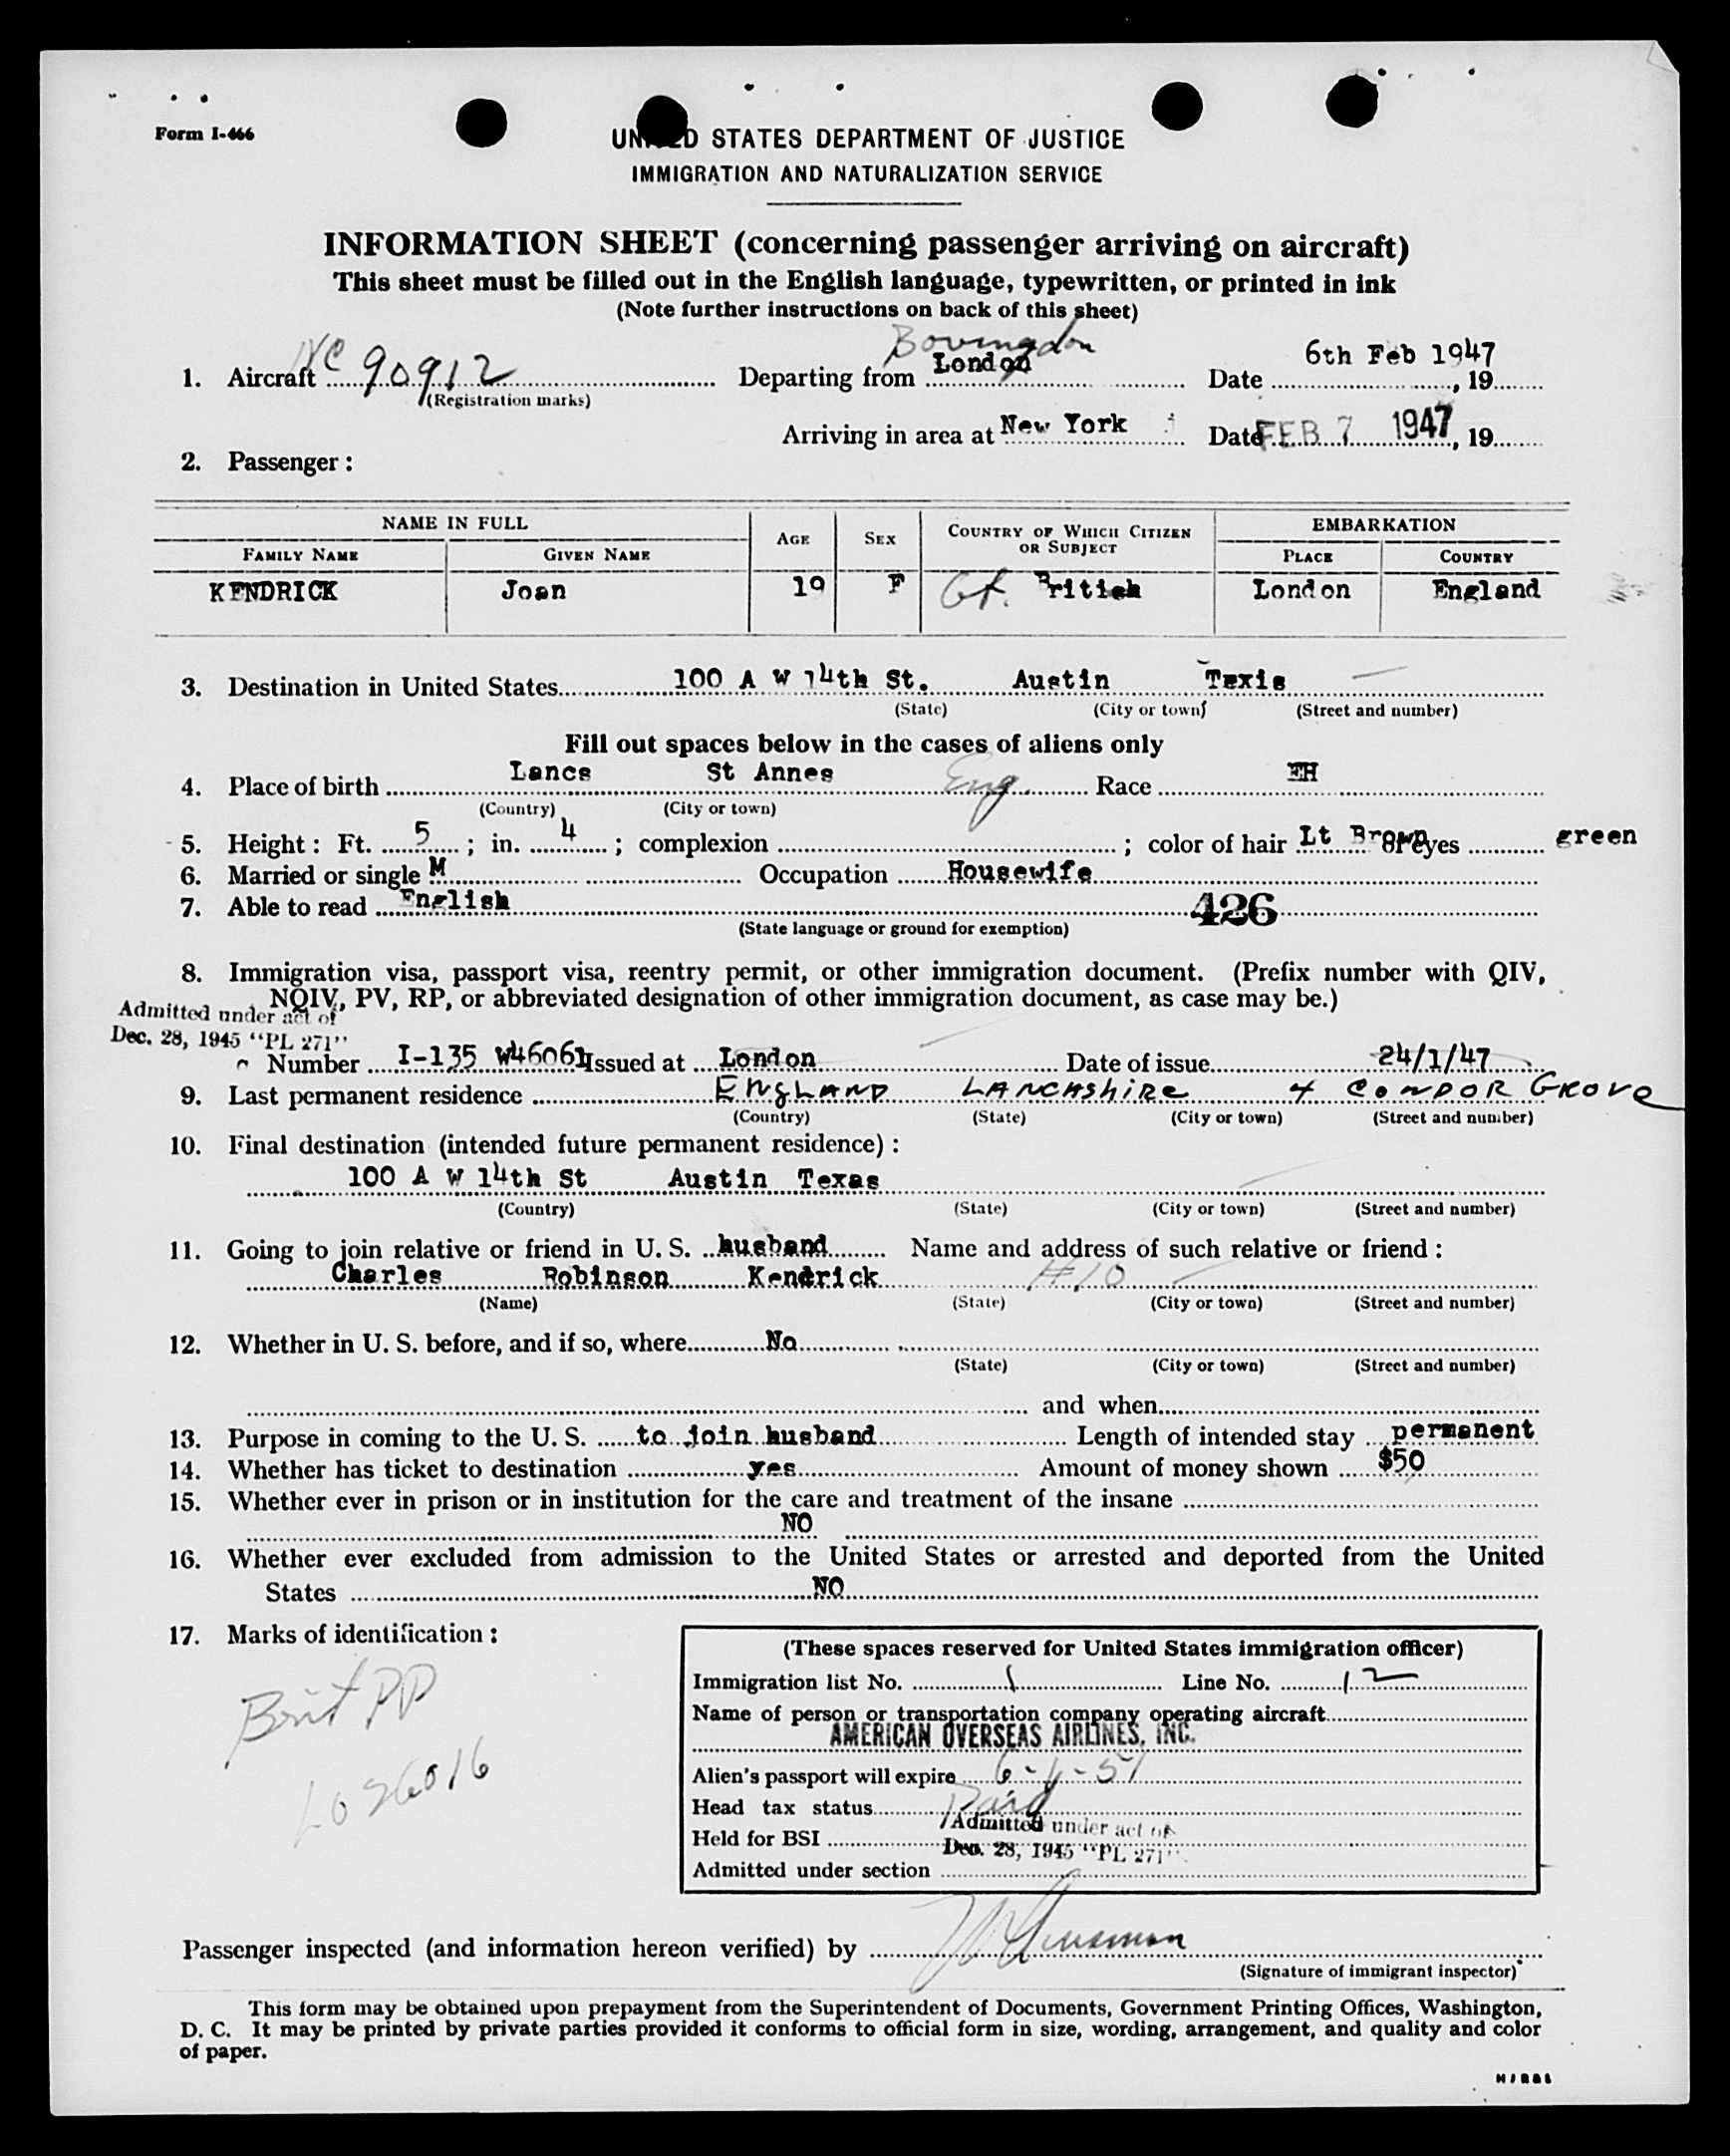 Form I-466
UNITED STATES DEPARTMENT OF JUSTICE
IMMIGRATION AND NATURALIZATION SERVICE
INFORMATION SHEET (concerning passenger arriving on aircraft)
This sheet must be filled out in the English language, typewritten, or printed in ink
(Note further instructions on back of this sheet)
Bovingdon
1. Aircraft NC 90912 Departing from London Date 6th Feb 1947, 19
(Registration marks)
Arriving in area at New York Date FEB 7 1947, 19
2. Passenger:
NAME IN FULL AGE SEX COUNTRY OF WHICH CITIZEN OR SUBJECT EMBARKATION
FAMILY NAME GIVEN NAME PLACE COUNTRY
KENDRICK Joan 19 F Gt. British London England
3. Destination in United States 100 A W 14th St. Austin Texis
(State) (City or town) (Street and number)
Fill out spaces below in the cases of aliens only
4. Place of birth Lancs St Annes Eng. Race EH
(Country) (City or town)
5. Height: Ft. 5; in. 4; complexion; color of hair Lt Brown of eyes green
6. Married or single M Occupation Housewife
7. Able to read English 426
(State language or ground for exemption)
8. Immigration visa, passport visa, reentry permit, or other immigration document. (Prefix number with QIV,
NQIV, PV, RP, or abbreviated designation of other immigration document, as case may be.)
Admitted under act of
Dec. 28, 1945 "PL 271"
Number I-135 W46061 Issued at London Date of issue 24/1/47
9. Last permanent residence ENGLAND LANCASHIRE 4 CONDOR GROVE
(Country) (State) (City or town) (Street and number)
10. Final destination (intended future permanent residence):
100 A W 14th St Austin Texas
(Country) (State) (City or town) (Street and number)
11. Going to join relative or friend in U. S. husband Name and address of such relative or friend:
Charles Robinson Kendrick #10
(Name) (State) (City or town) (Street and number)
12. Whether in U. S. before, and if so, where No
(State) (City or town) (Street and number)
and when
13. Purpose in coming to the U. S. to join husband Length of intended stay permanent
14. Whether has ticket to destination yes Amount of money shown $50
15. Whether ever in prison or in institution for the care and treatment of the insane
NO
16. Whether ever excluded from admission to the United States or arrested and deported from the United
States NO
17. Marks of identification:
Brit PP
L026016
(These spaces reserved for United States immigration officer)
Immigration list No. 1 Line No. 12
Name of person or transportation company operating aircraft
AMERICAN OVERSEAS AIRLINES, INC.
Alien's passport will expire
Head tax status Paid
Admitted under act of
Held for BSI
Dec. 28, 1945 "PL 271"
Admitted under section
Passenger inspected (and information hereon verified) by
(Signature of immigrant inspector)
This form may be obtained upon prepayment from the Superintendent of Documents, Government Printing Offices, Washington,
D. C. It may be printed by private parties provided it conforms to official form in size, wording, arrangement, and quality and color
of paper.